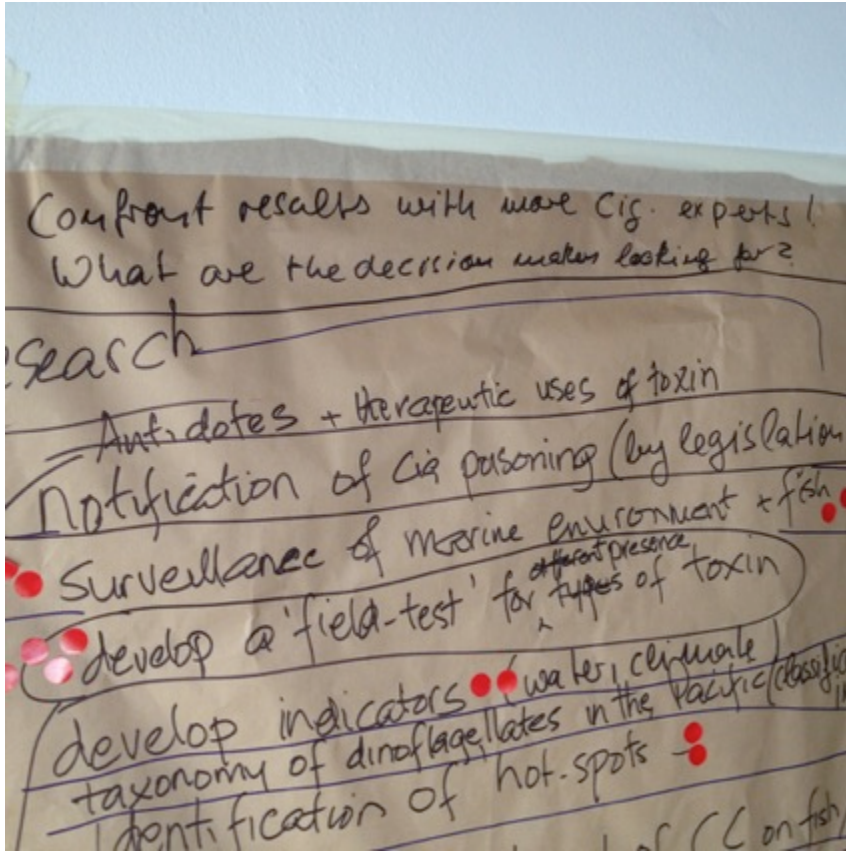 Confront results with more Cig. experts!
What are the decision makers looking for?
search
Antidotes + therapeutic uses of toxin
Notification of Cig poisoning (by legislation
Surveillance of marine environment + fish
presence
develop a 'field-test' for of toxin
develop indicators (water, climate)
taxonomy of dinoflagellates in the Pacific (classific
identification of hot-spots
of CC on fish